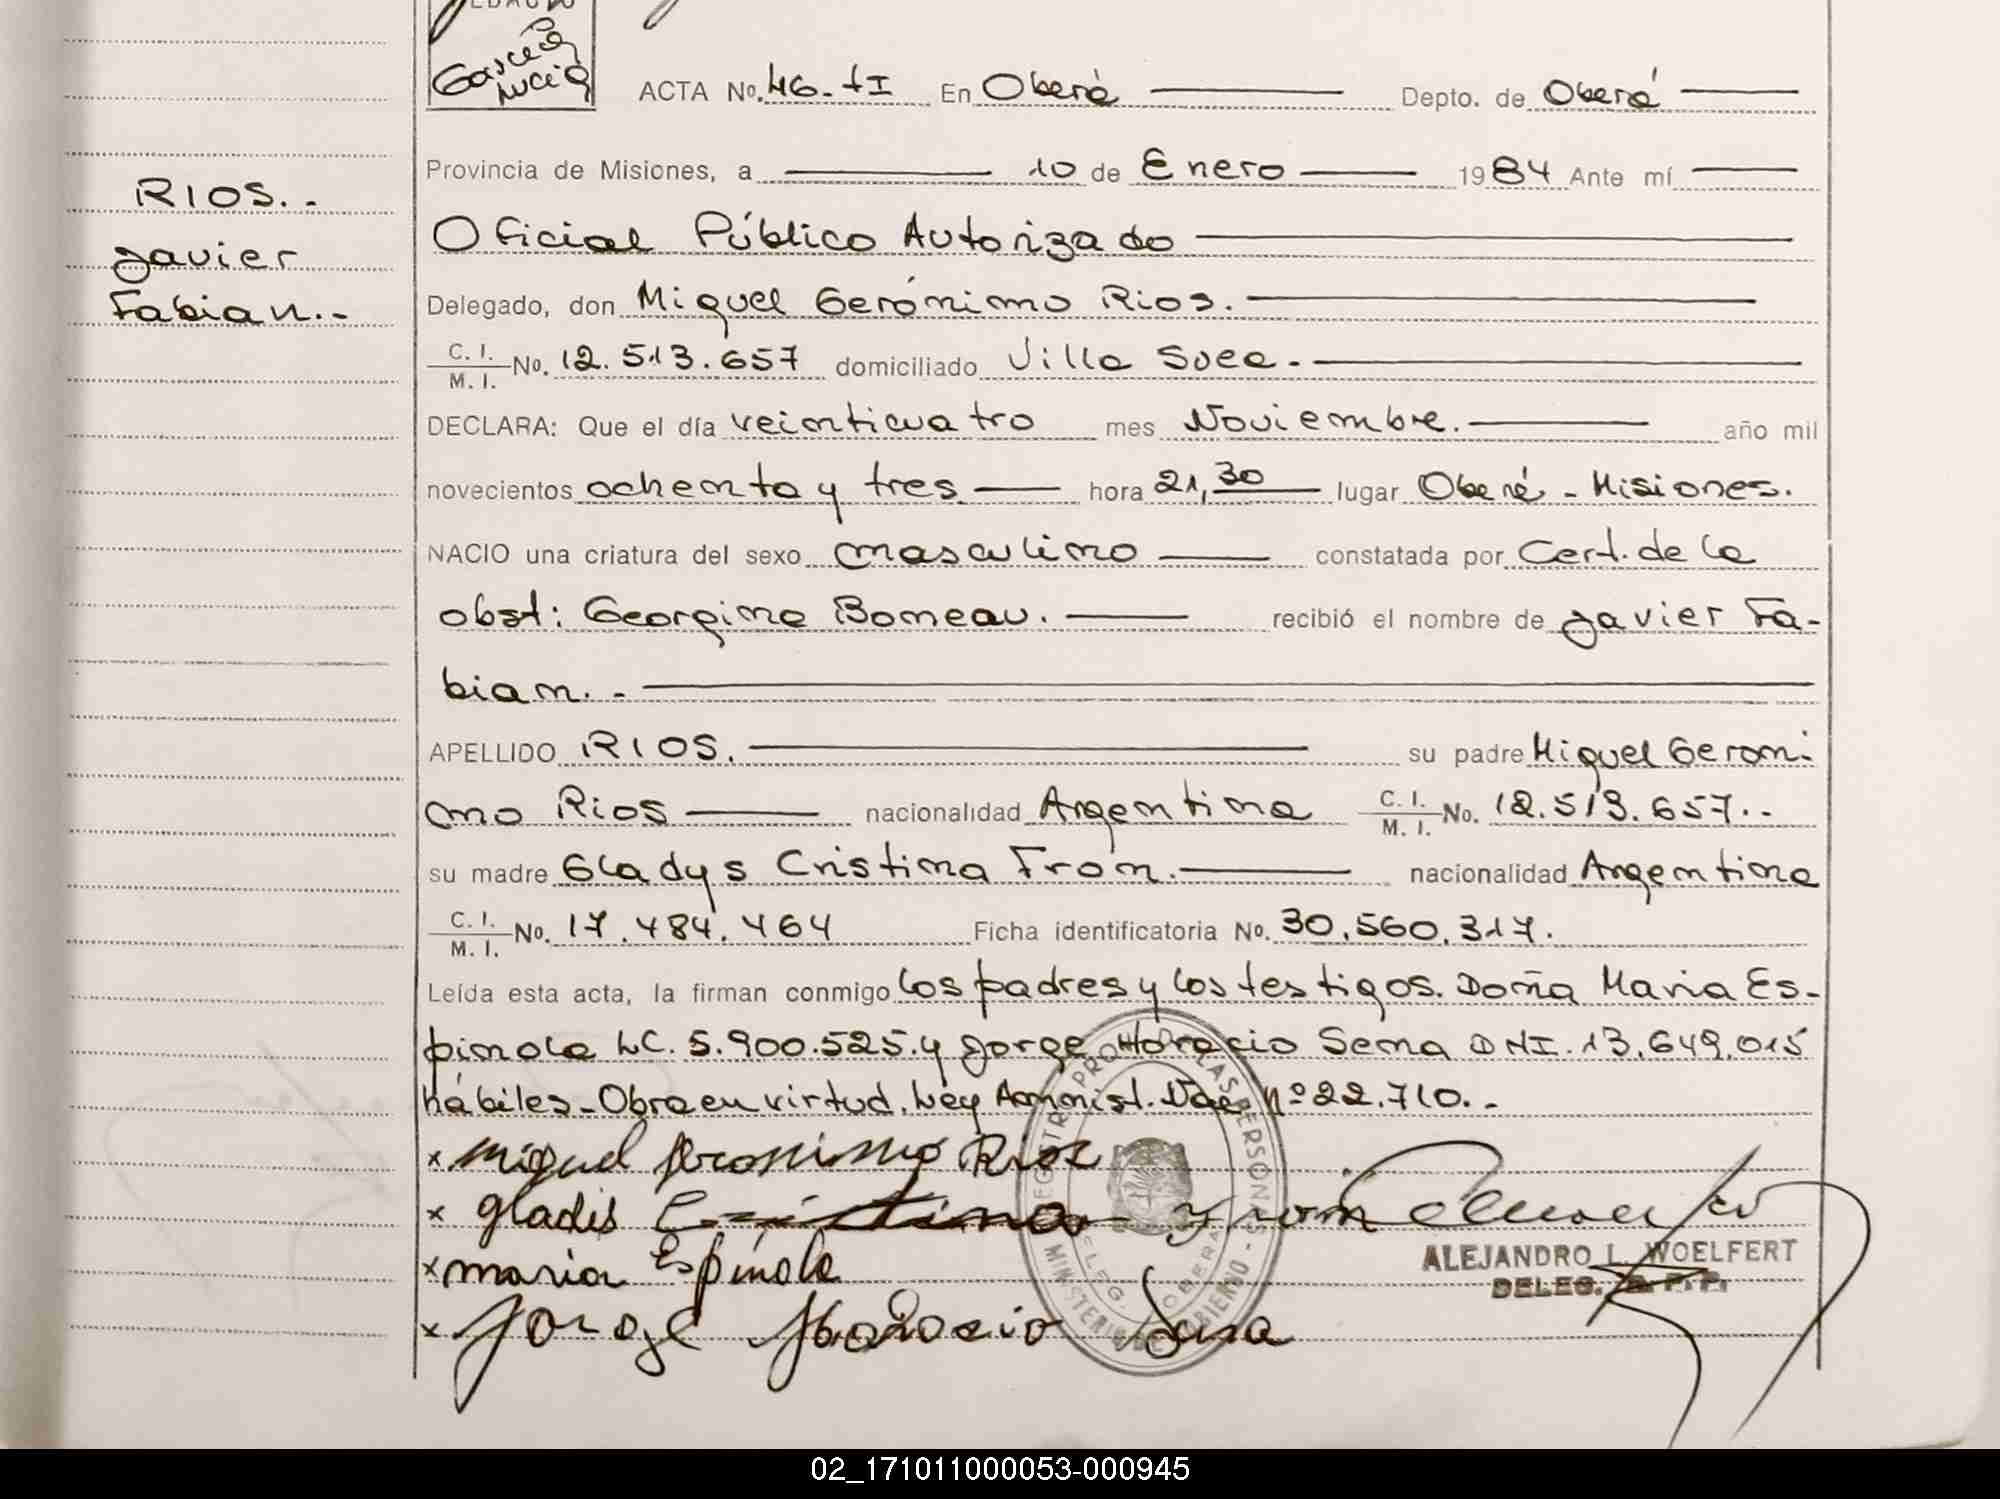 García
Lucía
ACTA No. 46-tI En Oberá Depto. de Oberá
Provincia de Misiones, a 10 de Enero 1984 Ante mí
Oficial Público Autorizado
RIOS.-
Javier
Fabian.-
Delegado, don Miguel Gerónimo Rios.
C. I.
M. I. No. 12.513.657 domiciliado Villa Svea.-
DECLARA: Que el día veinticuatro mes Noviembre. año mil
novecientos ochenta y tres hora 21,30 lugar Oberá - Misiones.
NACIO una criatura del sexo masculino constatada por Cert. de la
obst: Georgina Boneau. recibió el nombre de Javier Fa-
bian.-
APELLIDO RIOS. su padre Miguel Geroni
mo Rios nacionalidad Argentina C. I.
M. I. No. 12.513.657.-
su madre Gladys Cristina Fron. nacionalidad Argentina
C. I.
M. I. No. 17.484.464 Ficha identificatoria No. 30.560.317.
Leída esta acta, la firman conmigo los padres y los testigos. Doña Maria Es-
pinola LC. 5.900.525. y Jorge Horacio Sena DNI. 13.649.015
hábiles - Obra en virtud. Ley Amnist. Nac nº 22.710.-
x Miguel Jeronimo Rios
x Gladis Cristina Fron
x maria Espinola
x Jorge Horacio Sena
ALEJANDRO L. WOELFERT
DELEG. R. P. P.
REGISTRO PROV. DE LAS PERSONAS - MINISTERIO DE GOBIERNO
DELEG. OBERA
02_171011000053-000945